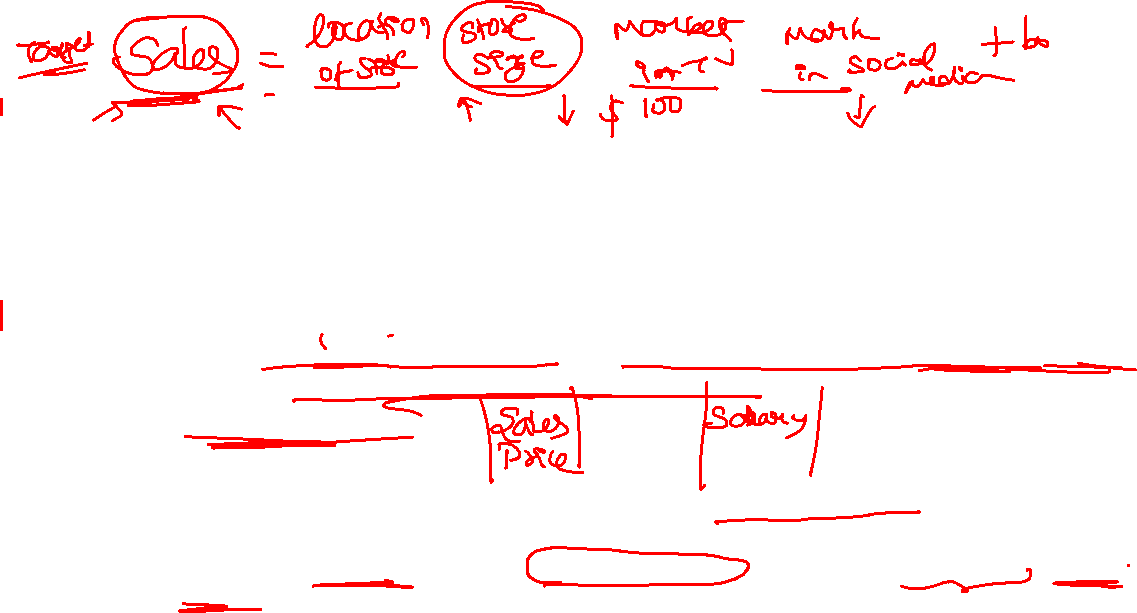 Target Sales = location of store store size market in T.V mark in social media + b0
$ 100
Sales Price
Salary